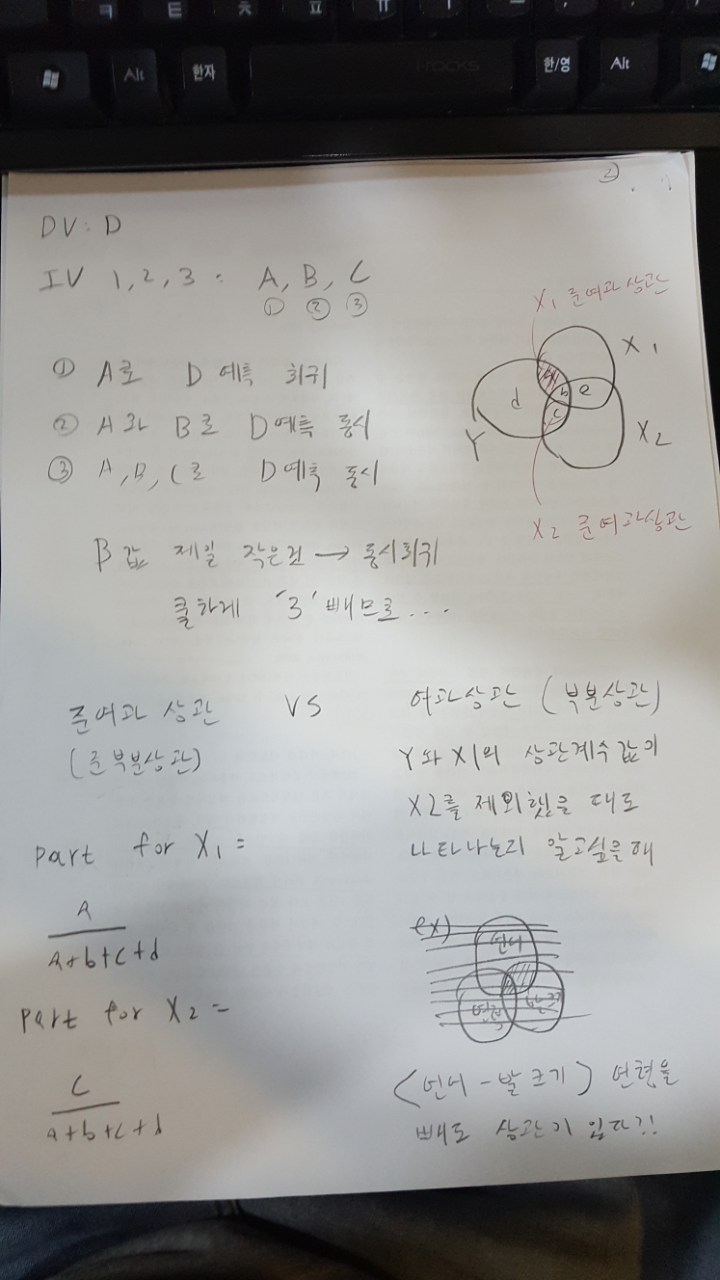 ㅋ ㅌ ㅊ ㅍ ㅠ
Alt 한자 i-rocks 한/영 Alt
2
DV: D
IV 1, 2, 3 : A, B, C
① ② ③
① A로 D 예측 회귀
② A와 B로 D예측 동시
③ A, B, C로 D예측 동시
B값 제일 작은건 → 동시회귀
쿨하게 '3' 빼므로...
X1 준여과상관
X1
a b e
d c
Y
X2
X2 준여과상관
준여과 상관 VS 여과상관 (부분상관)
(준부분상관)
Y와 X1의 상관계수값이
X2를 제외했을 때도
나타나는지 알고싶을때
part for X1 =
A
a+b+c+d
part for X2 =
C
a+b+c+d
ex)
언어
연령 발크기
(언어 - 발크기) 연령을
빼도 상관이 있다?!